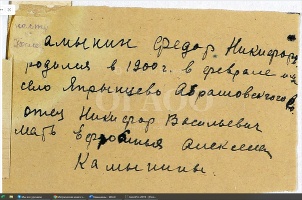 амынин Федор Никифоро
родился в 1900 г. в феврале
село Япрынцево Абрамовского
отец Никифор Васильевич
мать Ефросинья Алексеев
Камынины.